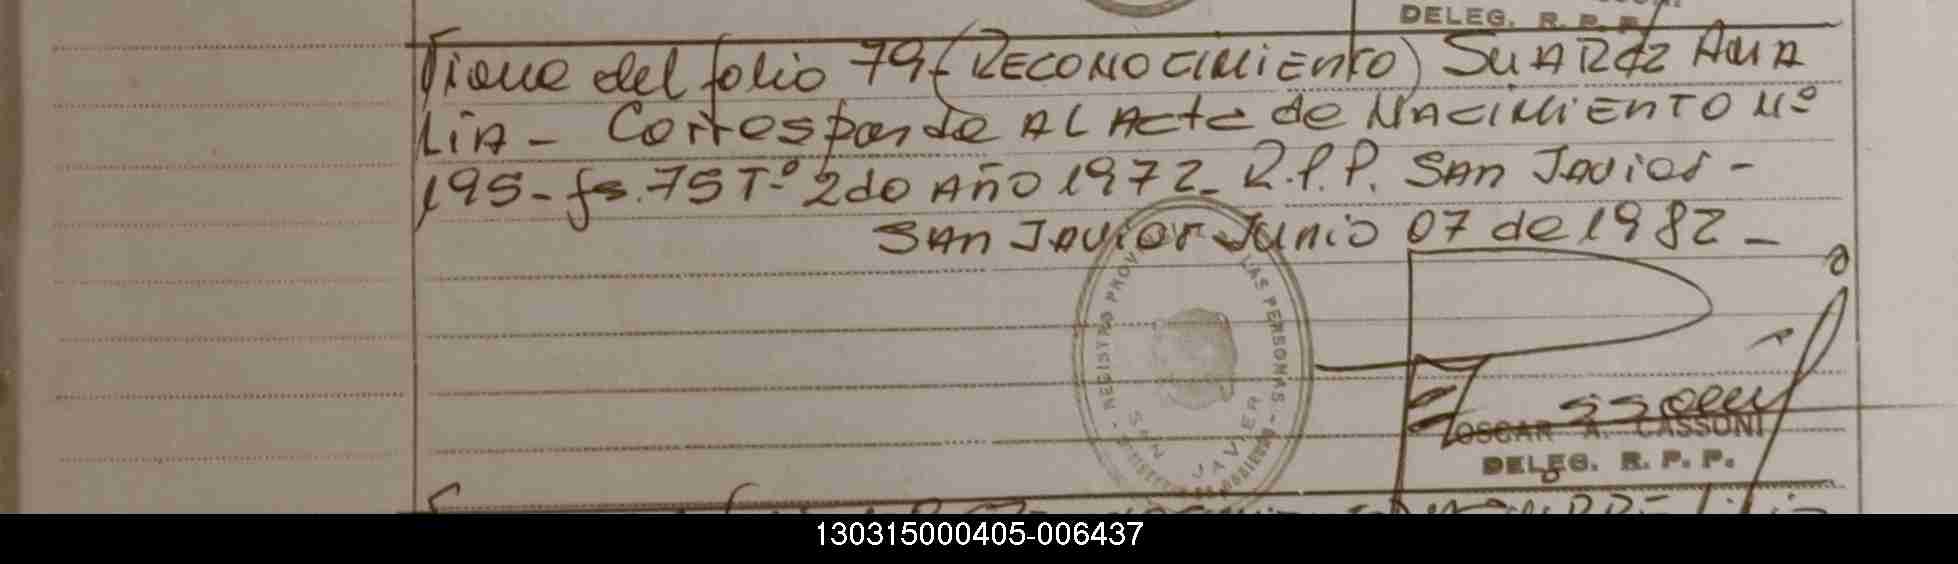 DELEG. R. P. P.
Viene del folio 79-(RECONOCIMIENTO) SUAREZ ANA
LIA - Corresponde AL Acta de NACIMIENTO Nº
195- fs. 75 Tº 2do AÑO 1972- R.P.P. SAN Javier -
SAN Javier Junio 07 de 1982 -
- REGISTRO PROV LAS PERSONAS -
SAN JAVIER
OSCAR A. CASSONI
DELEG. R. P. P.
130315000405-006437